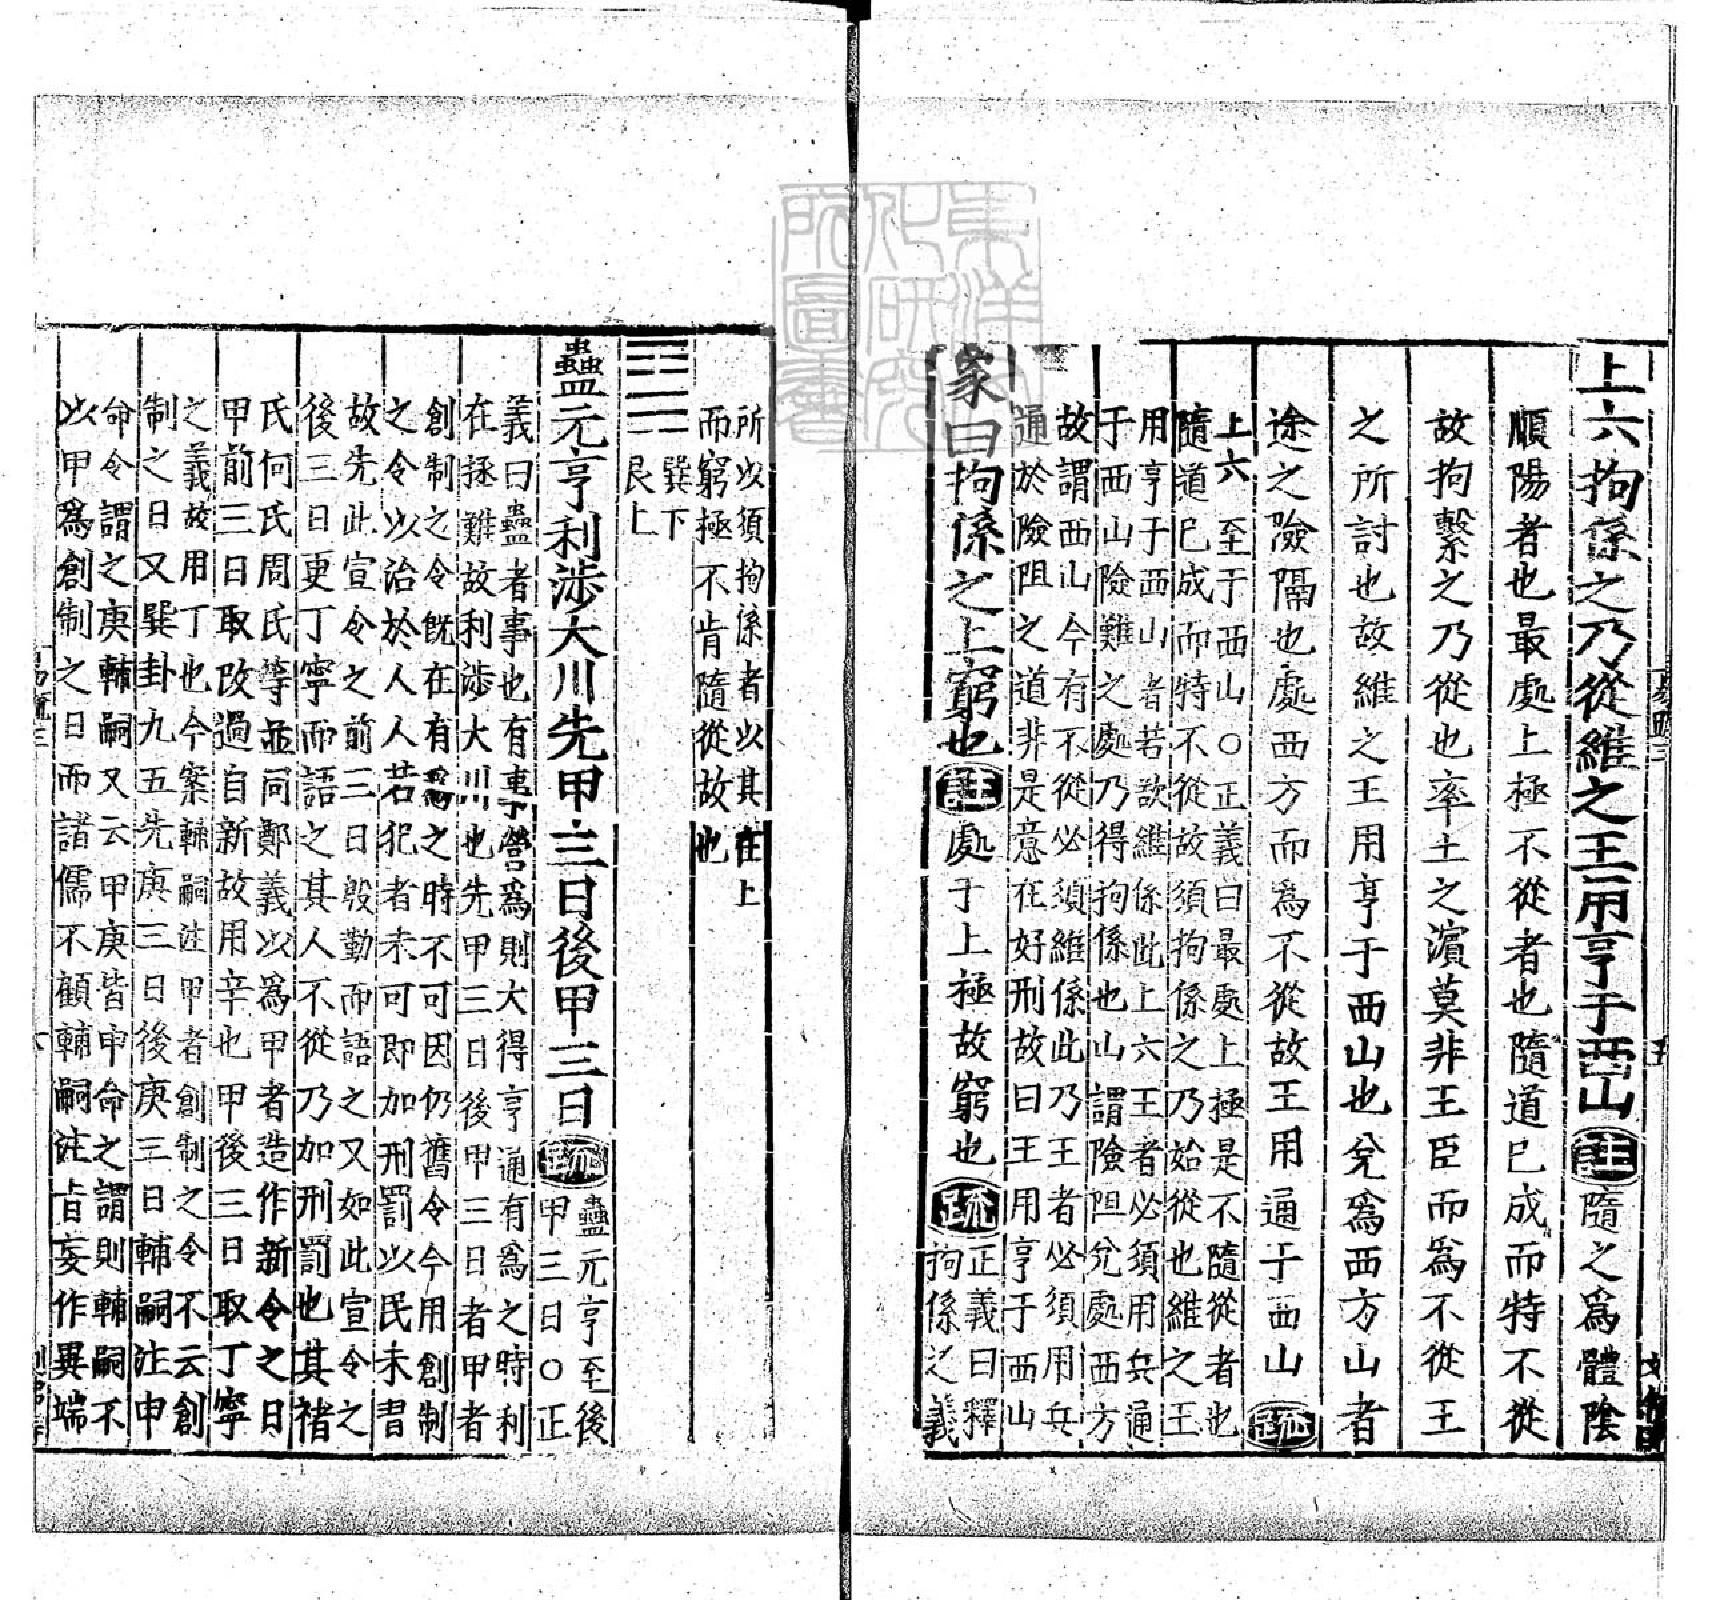 上六拘係之乃從維之王用亨于西山注隨之爲體陰
順陽者也最處上極不從者也隨道已成而特不從
故拘繫之乃從也率土之濱莫非王臣而爲不從王
之所討也故維之王用亨于西山也兌爲西方山者
途之險隔也處西方而爲不從故王用通于西山疏
上六至于西山○正義曰最處上極是不隨從者也
隨道已成而特不從故須拘係之乃始從也維之王
用亨于西山者若欲維係此上六王者必須用兵通
于西山險難之處乃得拘係也山謂險阻兌處西方
故謂西山今有不從必須維係此乃王者必須用兵
通於險阻之道非是意在好刑故曰王用亨于西山
象曰拘係之上窮也注處于上極故窮也疏
正義曰釋
拘係之義
所以須拘係者以其在上
而窮極不肯隨從故也
巽下
艮上
蠱元亨利涉大川先甲三日後甲三日疏
蠱元亨至後
甲三日○正
義曰蠱者事也有事營爲則大得亨通有爲之時利
在拯難故利涉大川也先甲三日後甲三日者甲者
創制之令旣在有爲之時不可因仍舊令今用創制
之令以治於人人若犯者未可即加刑罰以民未習
故先此宣令之前三日殷勤而語之又如此宣令之
後三日更丁寧而語之其人不從乃加刑罰也其褚
氏何氏周氏等並同鄭義以爲甲者造作新令之日
甲前三日取改過自新故用辛也甲後三日取丁寧
之義故用丁也今案輔嗣注甲者創制之令不云創
制之日又巽卦九五先庚三日後庚三日輔嗣注申
命令謂之庚輔嗣又云甲庚皆申命之謂則輔嗣不
以甲爲創制之日而諸儒不顧輔嗣注旨妄作異端